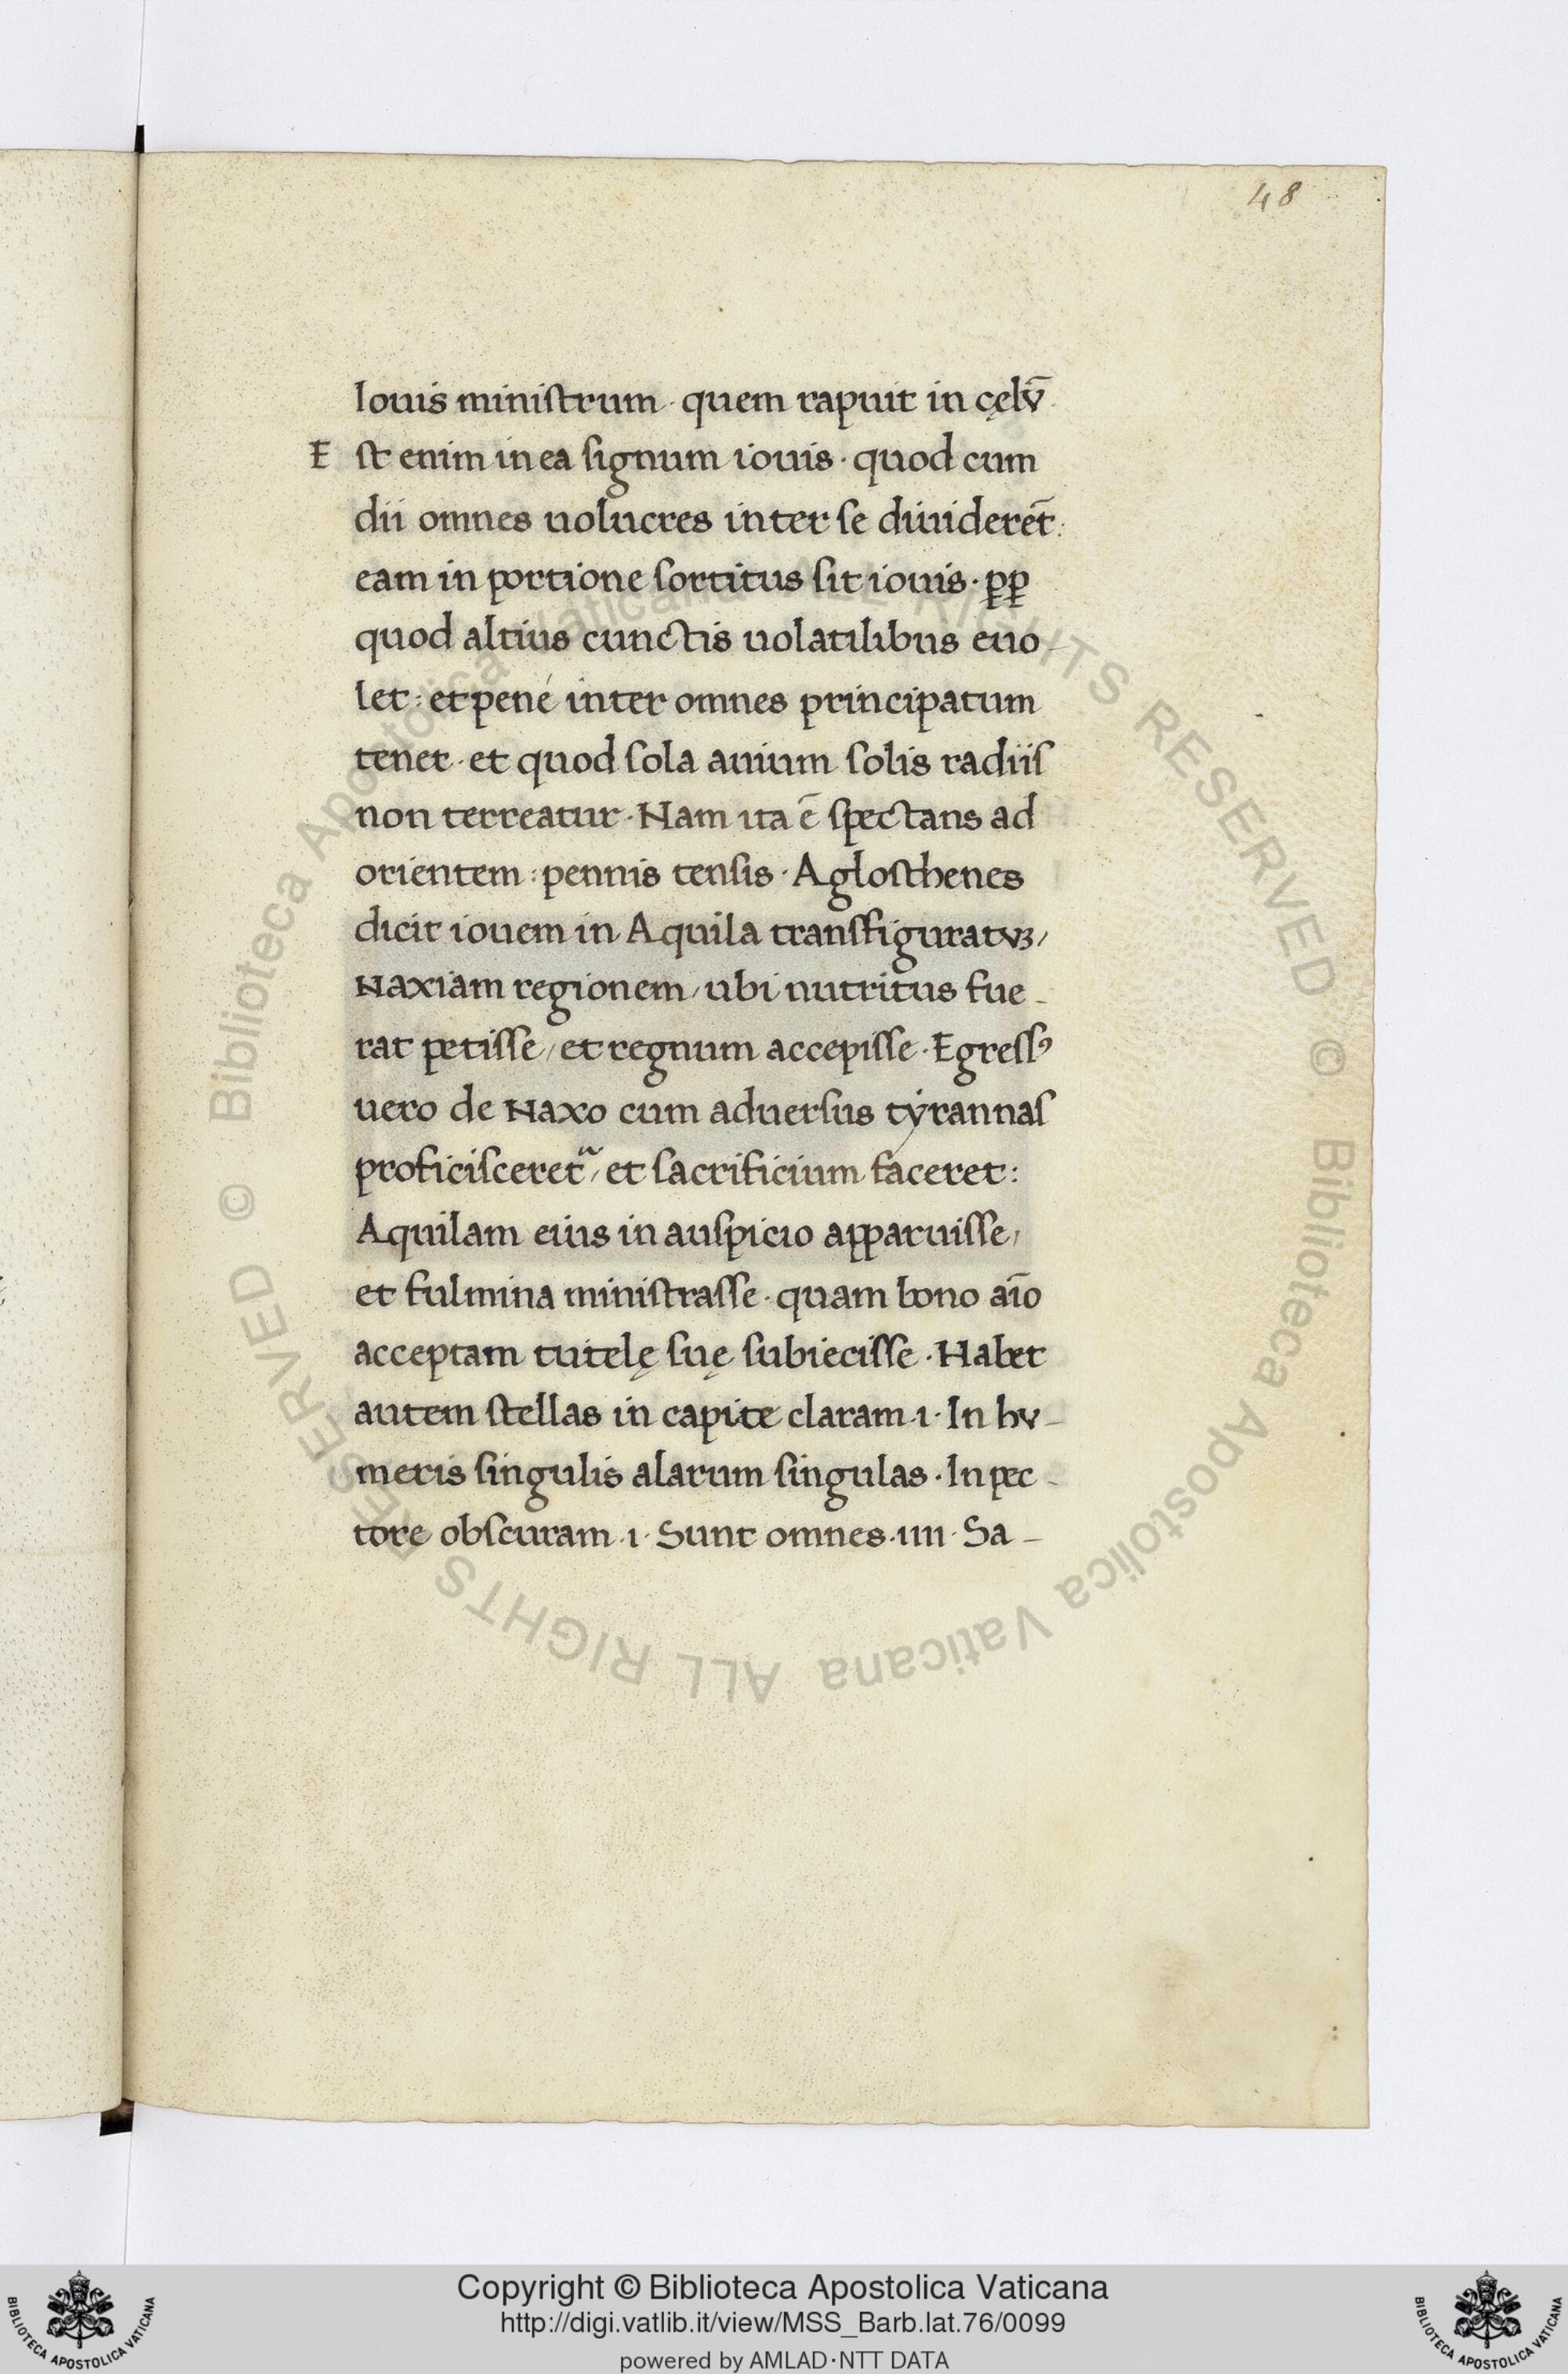 48
Iouis ministrum · quem rapuit in cęlv̄
E st enim in ea signum iouis · quod cum
dii omnes uolucres inter se diuiderēt:
eam in portione sortitus sit iouis · ꝓꝓ
quod altius cunctis uolatilibus euo-
let: et pené inter omnes principatum
tenet · et quod sola auium solis radiis
non terreatur · Nam ita ē spectans ad
orientem: pennis tensis · Aglosthenes
dicit iouem in Aquila transfiguratvꝫ/
Naxiam regionem/ ubi nutritus fue-
rat petisse/ et regnum accepisse · Egressꝰ
uero de Naxo cum aduersus tyrannas
proficisceretᷓ/ et sacrificium faceret:
Aquilam eius in auspicio apparuisse/
et fulmina ministrasse · quam bono aīo
acceptam tutelę suę subiecisse · Habet
autem stellas in capite claram ·ı· In hv-
meris singulis alarum singulas · In pec-
tore obscuram ·ı· Sunt omnes ·ıııı· Sa-
© Biblioteca Apostolica Vaticana ALL RIGHTS RESERVED
© Biblioteca Apostolica Vaticana ALL RIGHTS RESERVED
Copyright © Biblioteca Apostolica Vaticana
http://digi.vatlib.it/view/MSS_Barb.lat.76/0099
powered by AMLAD·NTT DATA
BIBLIOTECA APOSTOLICA VATICANA
BIBLIOTECA APOSTOLICA VATICANA